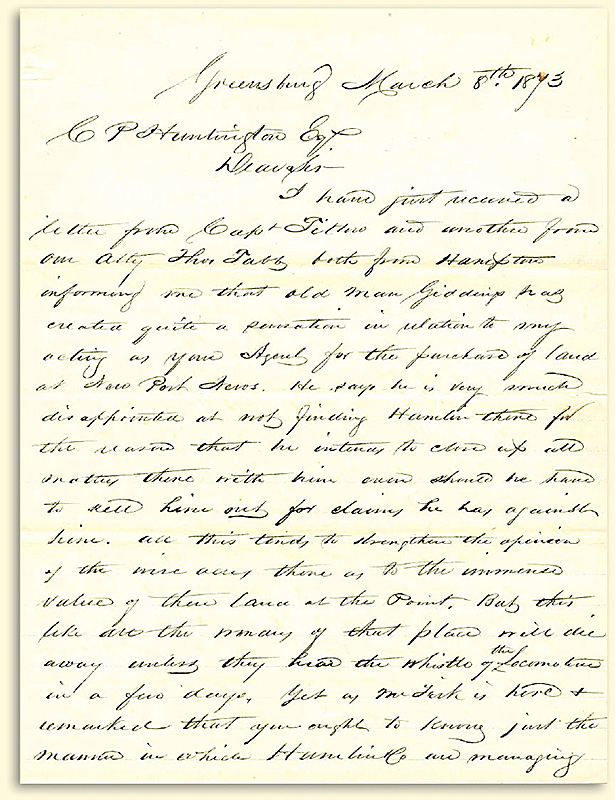 Greensburg March 8th. 1873
C P Huntington Esq
Dear Sir
I have just received a
letter from Capt Titlow and another from
our Atty Thos Tabb both from Hampton
informing me that old man Giddings has
created quite a sensation in relation to my
acting as your Agent for the purchase of land
at New Port News. He says he is very much
disappointed at not finding Hamlin there for
the reason that he intends to close up all
matters there with him even should he have
to sell him out for claims he has against
him. All this tends to strengthen the opinion
of the wise acres there as to the immense
value of their land at the Point. But this
like all the wonders of that place will die
away unless they hear the whistle of the Locomotive
in a few days. Yet as Mr is here &
remarked that you ought to know just the
manner in which Hamlin & Co are managing